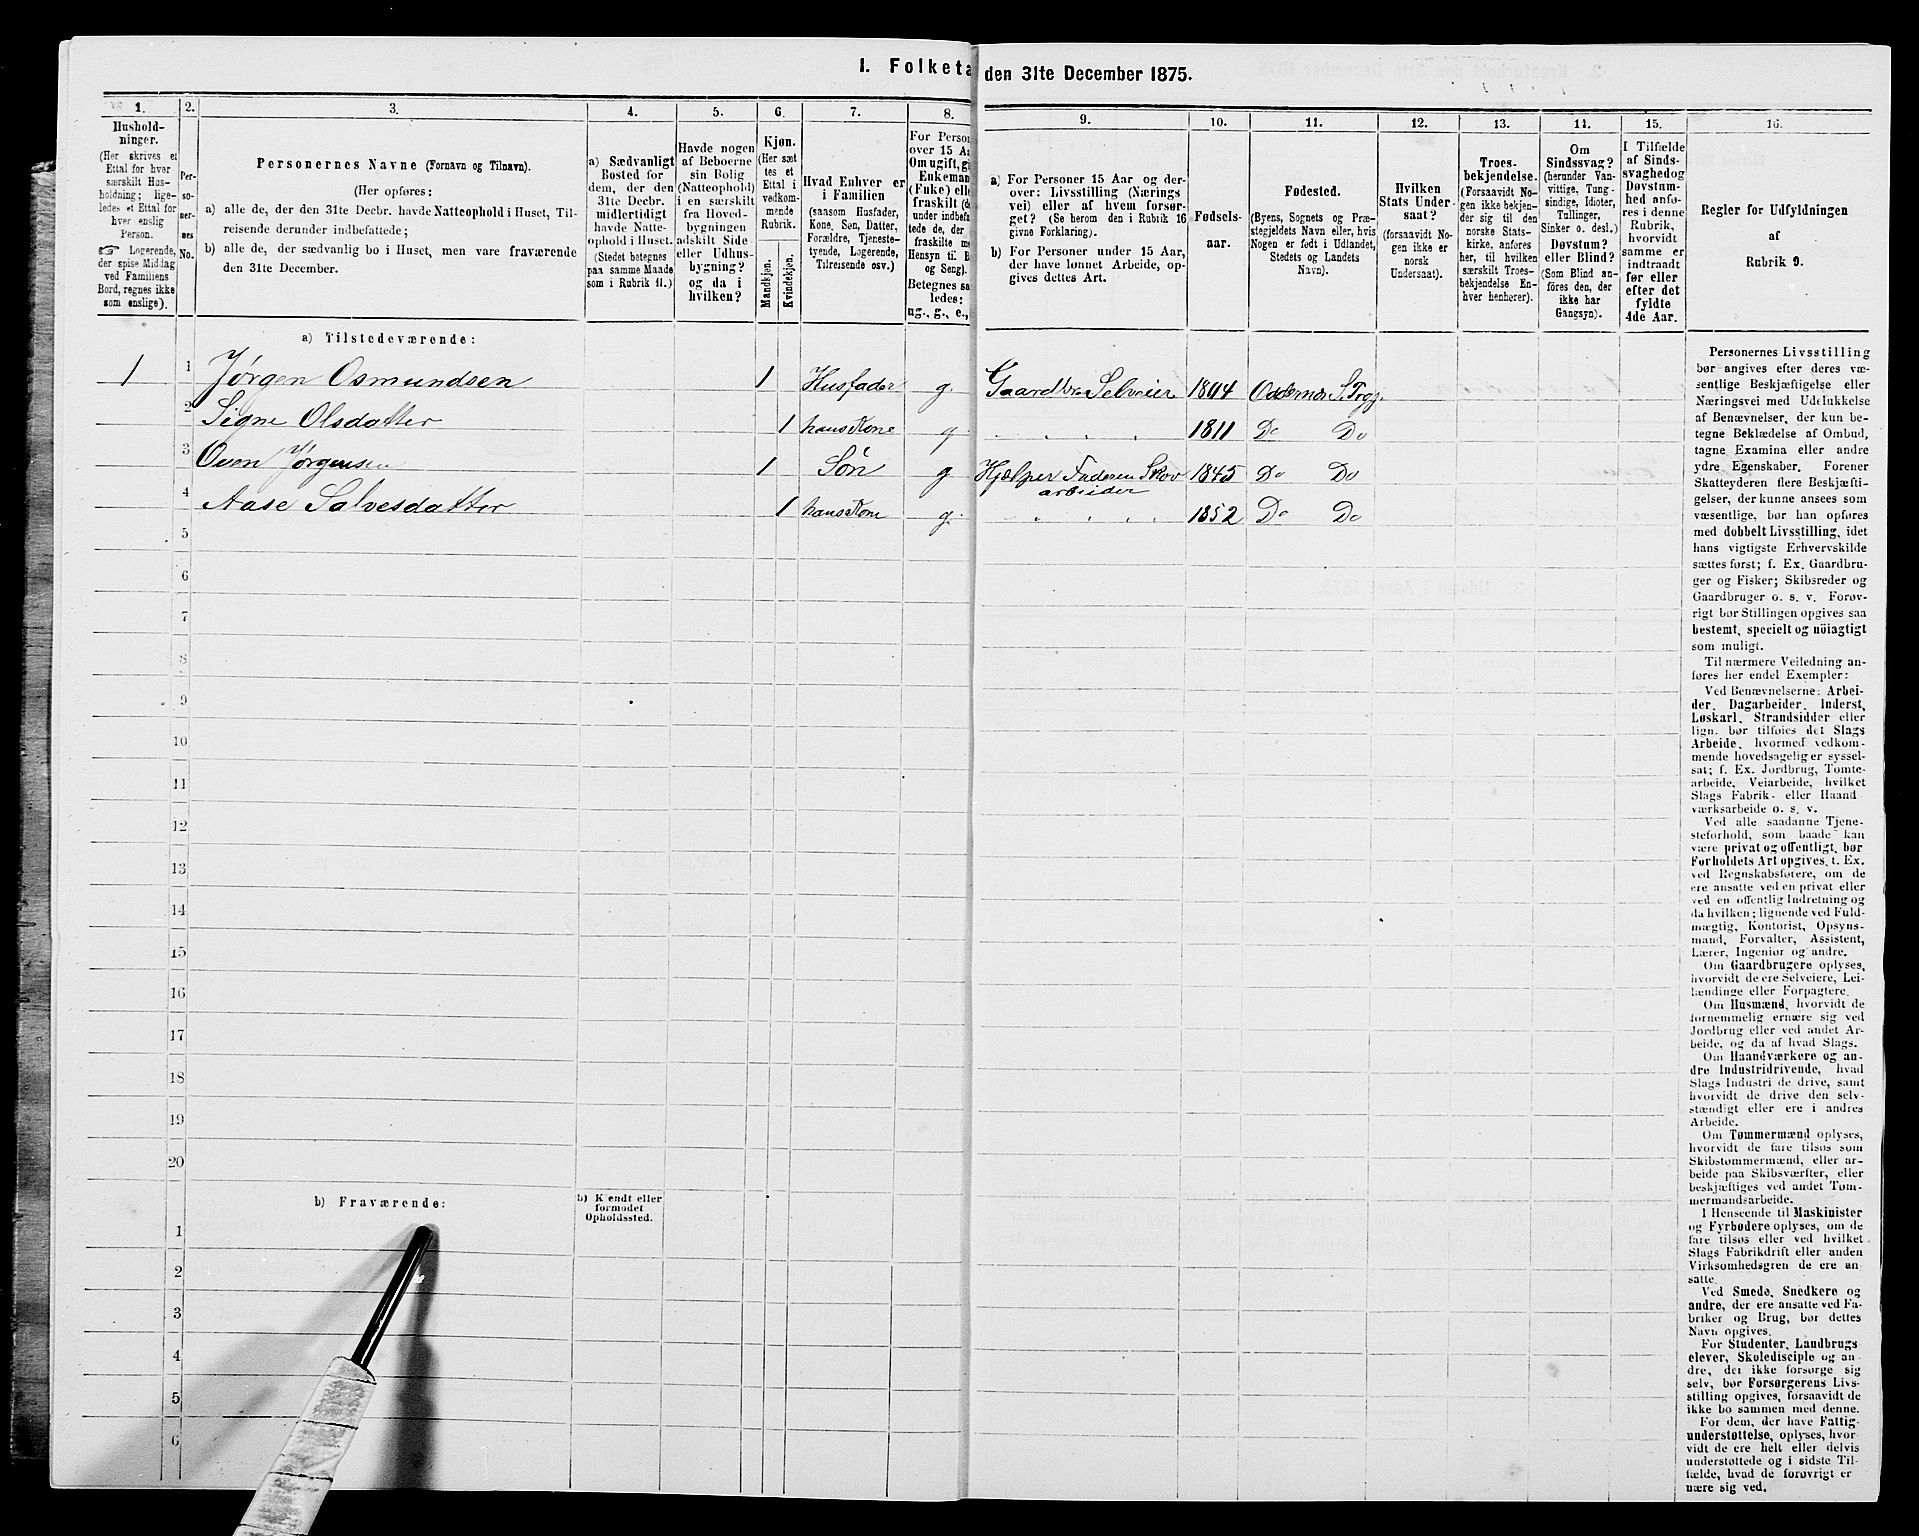 1. Folketa
den 31te December 1875.
1.
Hushold-
ninger.
(Her skrives et
Ettal for hver
særskilt Hus-
holdning; lige-
ledes et Ettal for
hver enslig
Person.
☞ Logerende,
der spise Middag
ved Familiens
Bord, regnes ikke
som enslige).
2.
Per-
so-
ner-
nes
No.
3.
Personernes Navne (Fornavn og Tilnavn).
(Her opføres:
a) alle de, der den 31te Decbr. havde Natteophold i Huset, Til-
reisende derunder indbefattede;
b) alle de, der sædvanlig bo i Huset, men vare fraværende
den 31te December.
4.
a) Sædvanligt
Bosted for
dem, der den
31te Decbr.
midlertidigt
havde Natte-
ophold i Huset.
(Stedet betegnes
paa samme Maade
som i Rubrik 11.)
5.
Havde nogen
af Beboerne
sin Bolig
(Natteophold)
i en særskilt
fra Hoved-
bygningen
adskilt Side-
eller Udhus-
bygning?
og da i
hvilken?
6.
Kjøn.
(Her sæt
tes et
Ettal i
vedkom-
mende
Rubrik.
Mandkjøn.
Kvindekjøn.
7.
Hvad Enhver er
i Familien
(saasom Husfader,
Kone, Søn, Datter,
Forældre, Tjeneste-
tyende, Logerende,
Tilreisende osv.)
8.
For Person
over 15 Aa
Om ugift, gi
Enkeman
(Enke) elle
fraskilt (de
under indbefa
tede de, der
fraskilte me
Hensyn til B
og Seng).
Betegnes sa
ledes:
ug., g., e.,
9.
a) For Personer 15 Aar og der-
over: Livsstilling (Nærings
vei) eller af hvem forsør-
get? (Se herom den i Rubrik 16
givne Forklaring).
b) For Personer under 15 Aar,
der have lønnet Arbeide, op-
gives dettes Art.
10.
Fødsels-
aar.
11.
Fødested.
(Byens, Sognets og Præ-
stegjeldets Navn eller, hvis
Nogen er født i Udlandet,
Stedets og Landets
Navn).
12.
Hvilken
Stats Under
saat?
(forsaavidt No-
gen ikke er
norsk
Undersaat).
13.
Troes-
bekjendelse.
(Forsaavidt No-
gen ikke bekjen-
der sig til den
norske Stats-
kirke, anføres
her, til hvilken
særskilt Troes-
bekjendelse En-
hver henhører).
14.
Om
Sindssvag?
(herunder Van-
vittige, Tung-
sindige, Idioter,
Tullinger,
Sinker o. desl.)
Døvstum?
eller Blind?
(Som Blind an-
føres den, der
ikke har
Gangsyn).
15.
I Tilfælde
af Sinds-
svaghedog
Døvstum-
hed anfø-
res i denne
Rubrik,
hvorvidt
samme er
indtraadt
før eller
efter det
fyldte
4de Aar.
16.
Regler for Udfyldningen
af
Rubrik 9.
a) Tilstedeværende:
1 1 Jørgen Osmundsen 1 Husfader g. Gaardbr. Selveier 1804 Oddernæs S. Prgj.
2 Signe Olsdatter 1 hans Kone g " " " 1811 Do Do
3 Oven Jørgensen 1 Søn g Hjælper Faderen Skov
arbeider 1845 Do Do
4 Aase Salvesdatter 1 hans Kone g. " " " 1852 Do Do
5
6
7
8
9
10
11
12
13
14
15
16
17
18
19
20
b) Fraværende:
b) Kjendt eller
formodet
Opholdssted.
1
2
3
4
5
6
Personernes Livsstilling
bør angives efter deres væ-
sentlige Beskjæftigelse eller
Næringsvei med Udelukkelse
af Benævnelser, der kun be-
tegne Beklædelse af Ombud,
tagne Examina eller andre
ydre Egenskaber. Forener
Skatteyderen flere Beskjæfti-
gelser, der kunne ansees som
væsentlige, bør han opføres
med dobbelt Livsstilling, idet
hans vigtigste Erhvervskilde
sættes først; f. Ex. Gaardbru-
ger og Fisker; Skibsreder og
Gaardbruger o. s. v. Forøv-
rigt bør Stillingen opgives saa
bestemt, specielt og nöiagtigt
som muligt.
Til nærmere Veiledning an-
føres her endel Exempler:
Ved Benævnelserne: Arbei-
der, Dagarbeider, Inderst,
Løskarl, Strandsidder eller
lign. bør tilføies det Slags
Arbeide, hvormed vedkom-
mende hovedsagelig er syssel-
sat; f. Ex. Jordbrug, Tomte-
arbeide, Veiarbeide, hvilket
Slags Fabrik- eller Haand
værksarbeide o. s. v.
Ved alle saadanne Tjene-
steforhold, som baade kan
være privat og offentligt, bør
Forholdets Art opgives, f. Ex.
ved Regnskabsførere, om de
ere ansatte ved en privat eller
ved en offentlig Indretning og
da hvilken; lignende ved Fuld-
mægtig, Kontorist, Opsyns-
mand, Forvalter, Assistent,
Lærer, Ingeniør og andre.
Om Gaardbrugere oplyses,
hvorvidt de ere Selveiere, Lei-
lændinge eller Forpagtere.
Om Husmænd, hvorvidt de
fornemmelig ernære sig ved
Jordbrug eller ved andet Ar-
beide, og da af hvad Slags.
Om Haandværkere og an-
dre Industridrivende, hvad
Slags Industri de drive, samt
hvorvidt de drive den selv-
stændigt eller ere i andres
Arbeide.
Om Tømmermænd oplyses,
hvorvidt de fare tilsøs som
Skibstømmermænd, eller ar-
beide paa Skibsværfter, eller
beskjæftiges ved andet Tøm-
mermandsarbeide.
I Henseende til Maskinister
og Fyrbødere oplyses, om de
fare tilsøs eller ved hvilket
Slags Fabrikdrift eller anden
Virksomhedsgren de ere an
satte.
Ved Smede, Snedkere og
andre, der ere ansatte ved Fa-
briker og Brug, bør dettes
Navn opgives.
For Studenter, Landbrugs
elever, Skoledisciple og an-
dre, der ikke forsørge sig
selv, bør Forsørgerens Livs-
stilling opgives, forsaavidt de
ikke bo sammen med denne.
For dem, der have Fattig-
understøttelse, oplyses, hvor-
vidt de ere helt eller delvis
understøttede og i sidste Til-
fælde, hvad de forøvrigt er
nære sig ved.